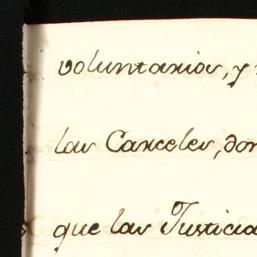 voluntarios, y
las Carceles, don
que las Justicia